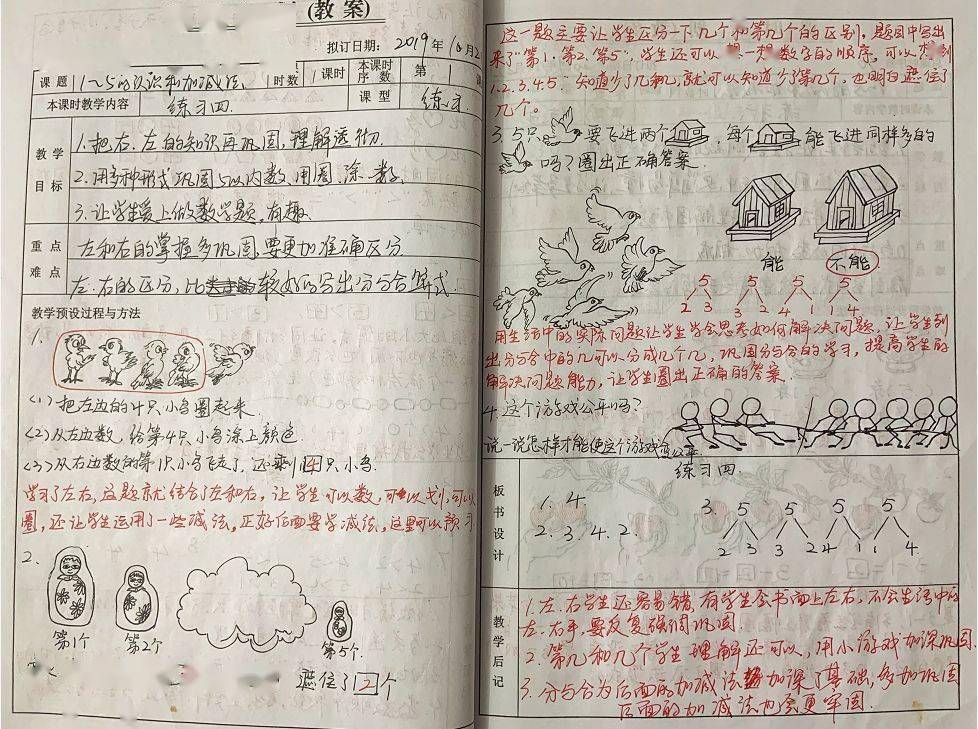 (教 案)
拟订日期: 2019年10月2
课 题 1~5的认识和加减法 时数 1课时 本课时序 数 第 1
本课时教学内容 练习四. 课 型 练习.
教 学 目 标
1.把右、左的知识再巩固,理解透彻.
2.用多种形式巩固5以内数,用圈、涂、数.
3.让学生爱上做数学题,有趣.
重 点 难 点
左和右的掌握多巩固,要更加准确区分
左、右的区分,比较好的写出分与合算式.
教学预设过程与方法
1.
(1)把左边的4只小鸟圈起来.
(2)从左边数,给第4只小鸟涂上颜色
(3)从右边数的第1只小鸟飞走了,还剩4只小鸟.
学习了左右,这题就结合了左和右,让学生可以数,可以划,可以
圈,还让学生运用了一些减法,正好后面要学减法,这里可以预习
2.
第1个 第2个 第5个.
遮住了2个
这一题主要让学生区分一下几个和第几个的区别,题目中写出
来了"第1、第2、第5",学生还可以 数字的顺序,可以
1.2.3.4.5. 知道少了几和几,就可以知道少了第几个,也明白遮住了
几个。
3.5只 要飞进两个 ,每个 能飞进同样多的
吗?圈出正确答案.
能 不能
5 5 5 5
2 3 3 2 4 1 1 4
用生活中的实际问题让学生学会思考如何解决问题,让学生列
出分与合中的几可以分成几个几,巩固分与合的学习,提高学生的
解决问题能力,让学生圈出正确的答案.
4.这个游戏公平吗?
说一说怎样才能使这个游戏变公平
板 书 设 计
练习四
1. 4. 3. 5 5 5 5
2. 3. 4. 2. 2 3 3 2 4 1 1 4.
教 学 后 记
1.左、右学生还容易错,有学生会书面上左右,不会生活中的
左、右手,要反复强调巩固.
2.第几和几个学生理解还可以,用小游戏加深巩固.
3.分与合为后面的加减法加深了基础,多加巩固
后面的加减法也会更牢固.